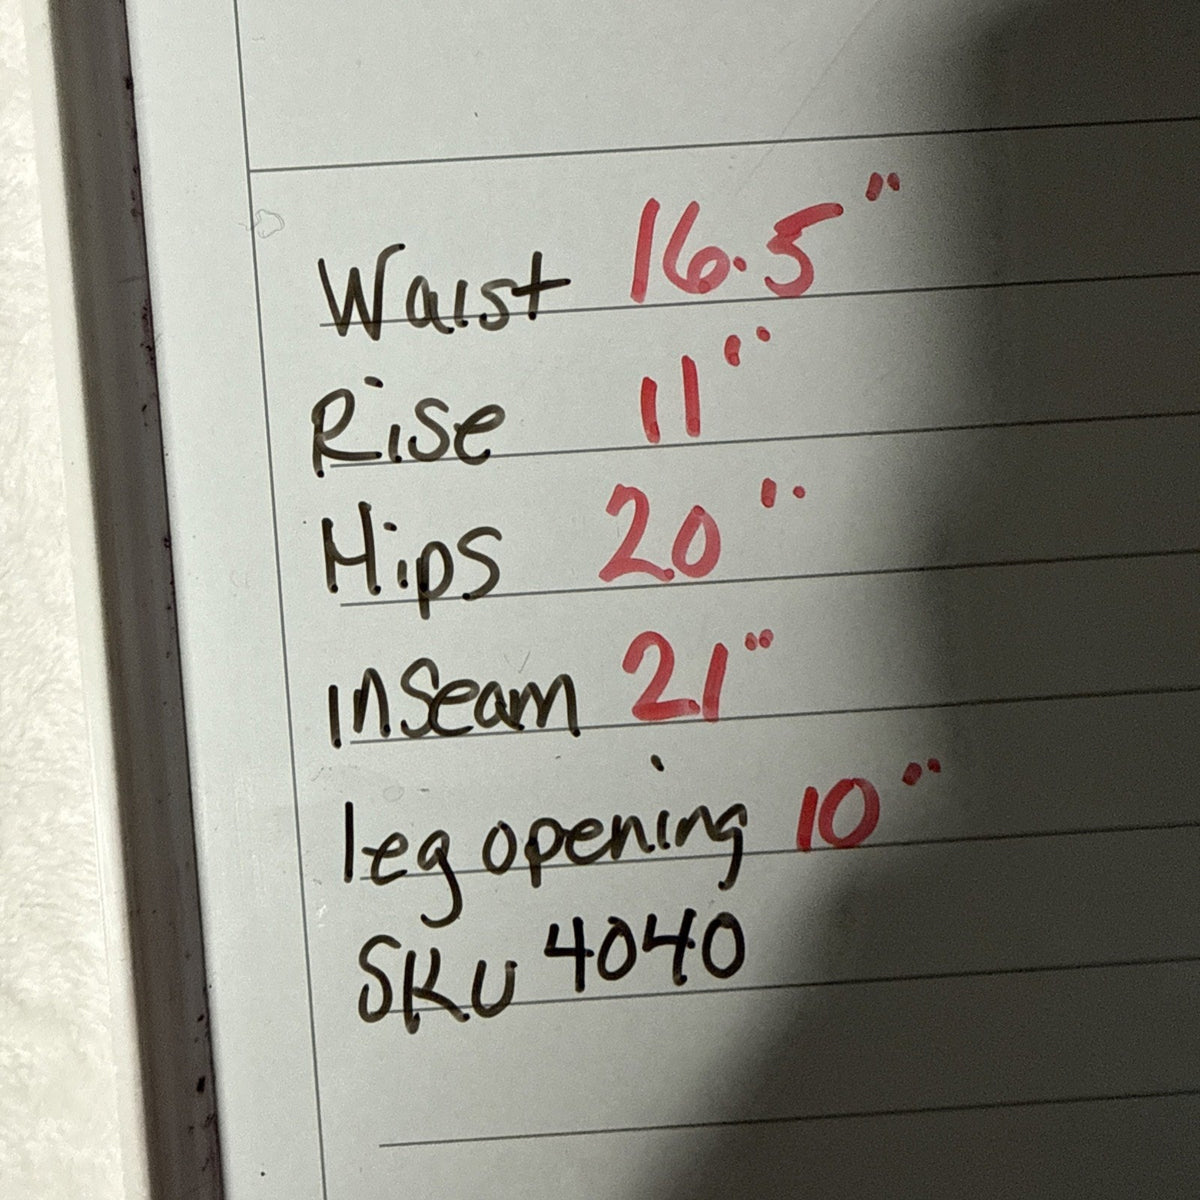 Waist 16.5"
Rise 11"
Hips 20"
inseam 21"
leg opening 10"
SKU 4040